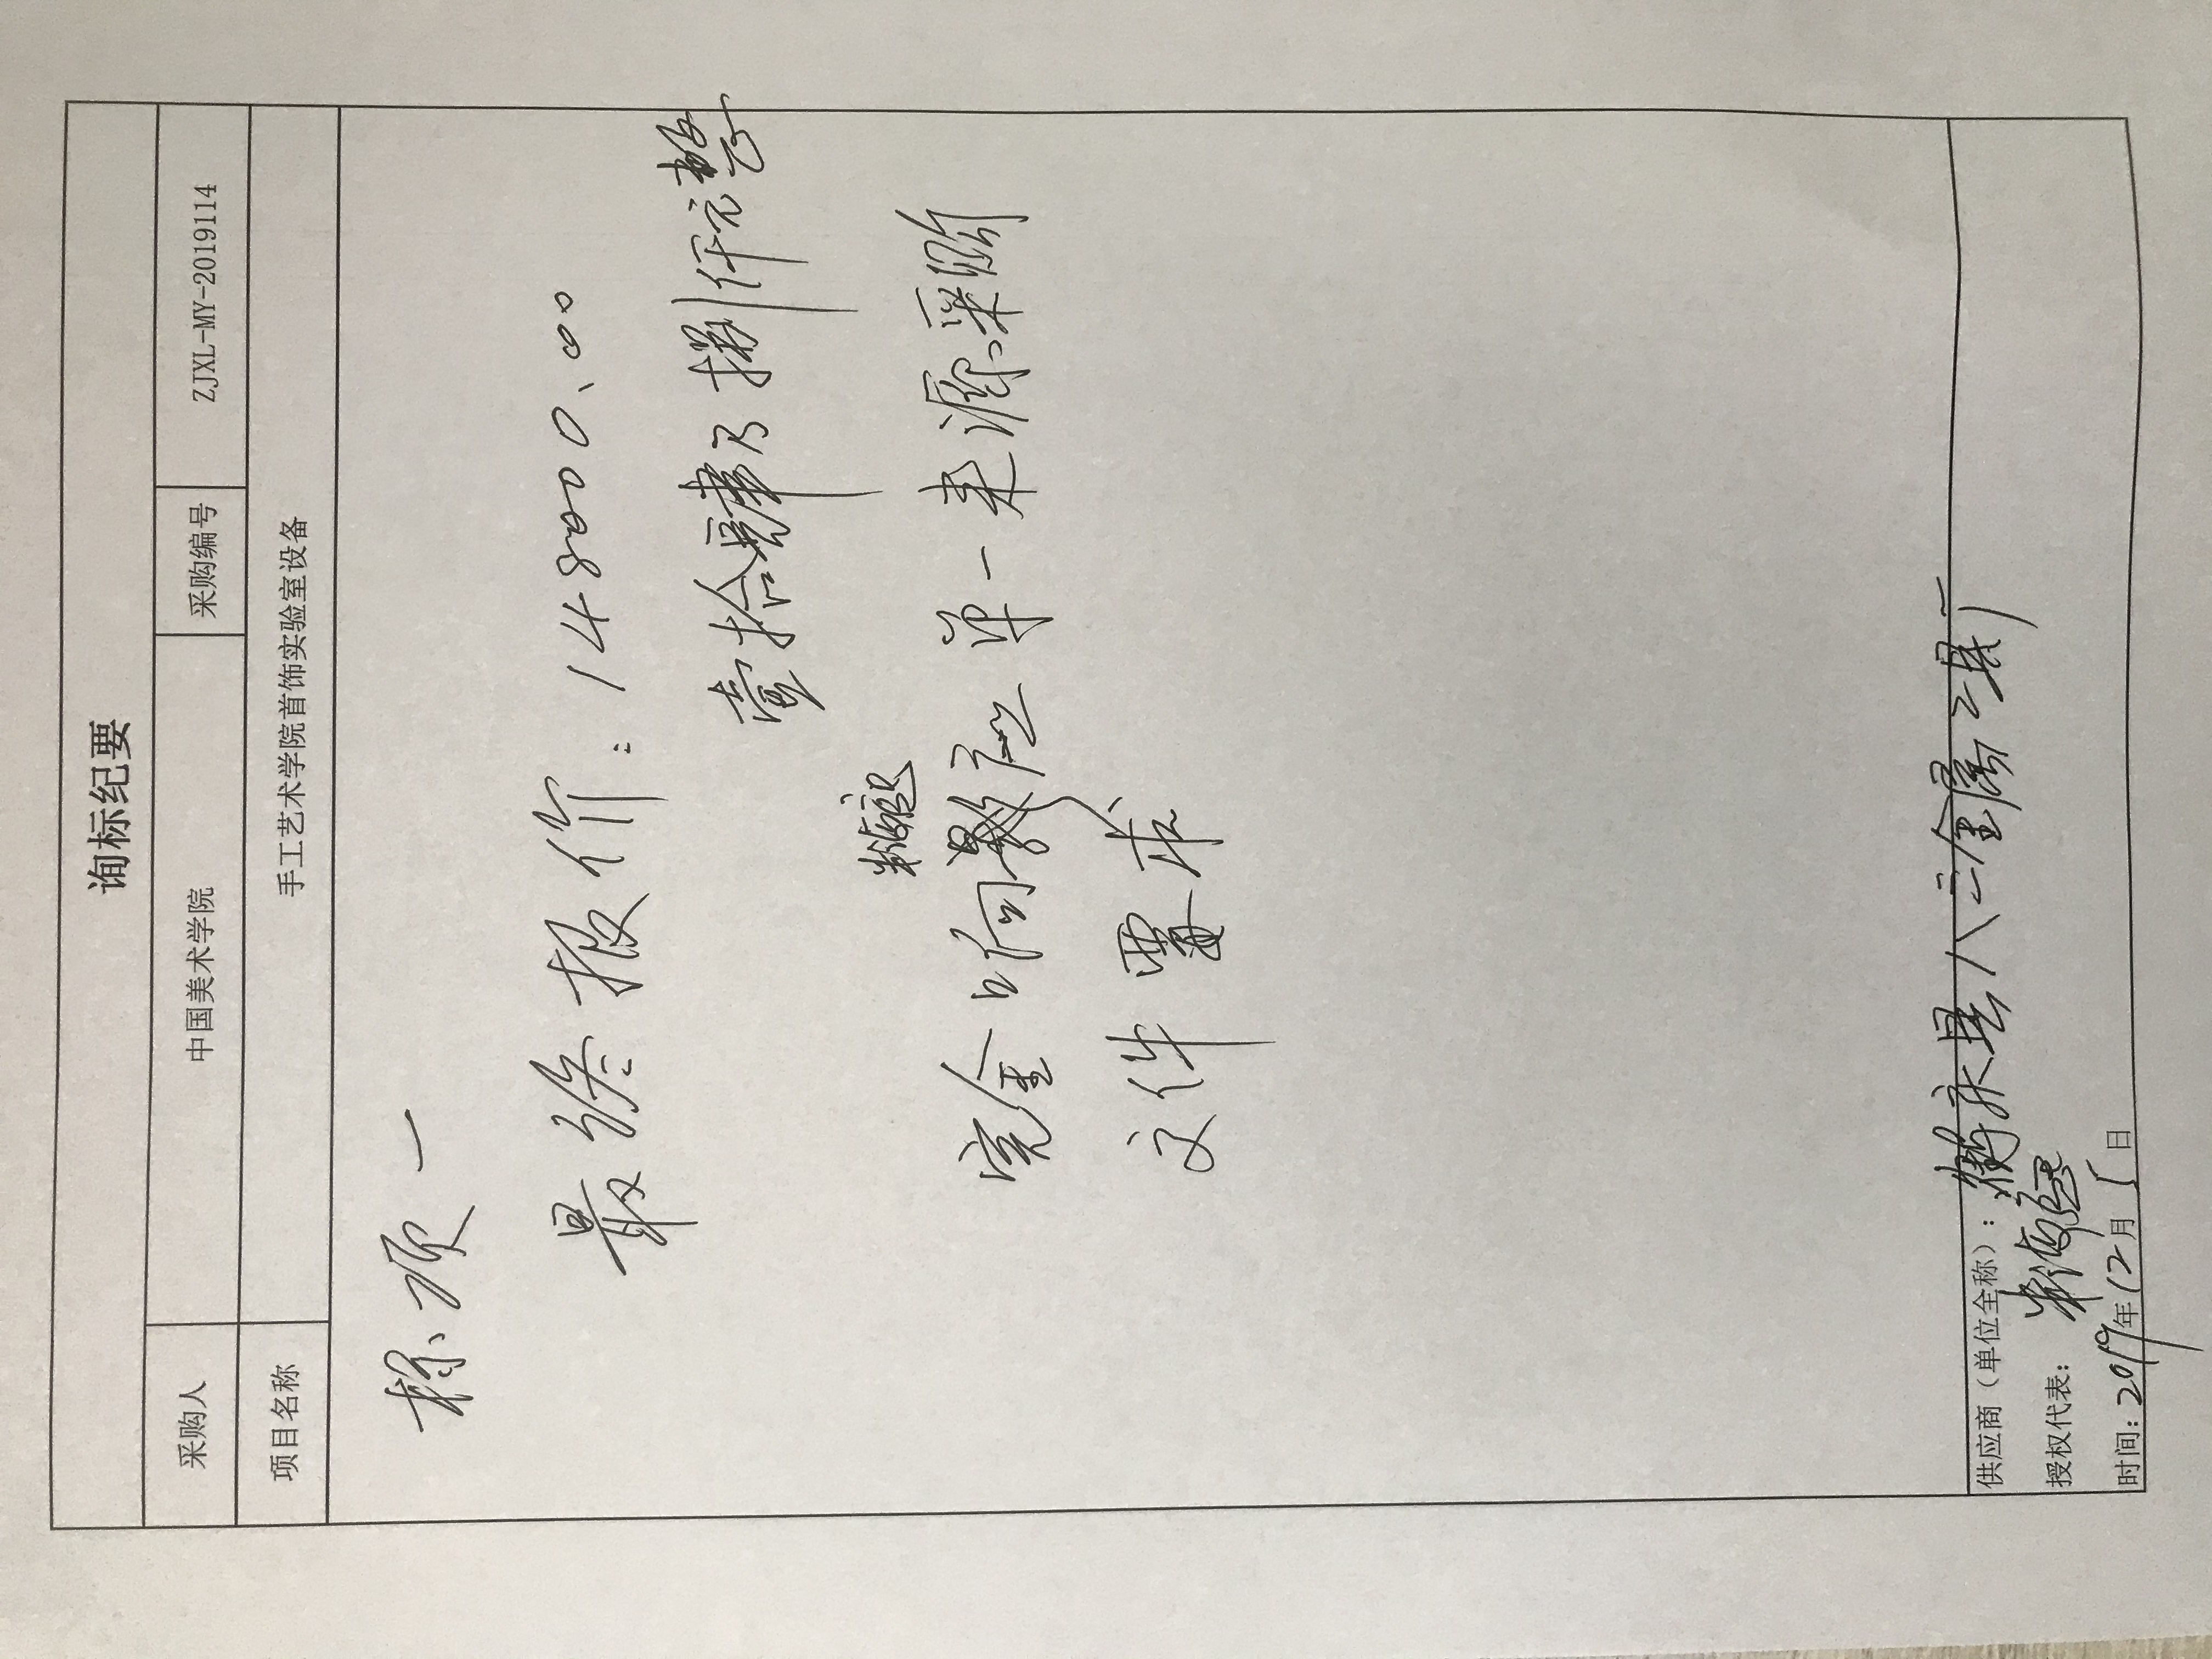 询标纪要
采购人 中国美术学院 采购编号 ZJXL-MY-2019114
项目名称 手工艺术学院首饰实验室设备
标项一
最终报价：148000.00
壹拾肆万捌仟元整
完全响应单一来源采购
文件要求
供应商（单位全称）：永县八三金属工具厂
授权代表：
时间：2019年12月5日